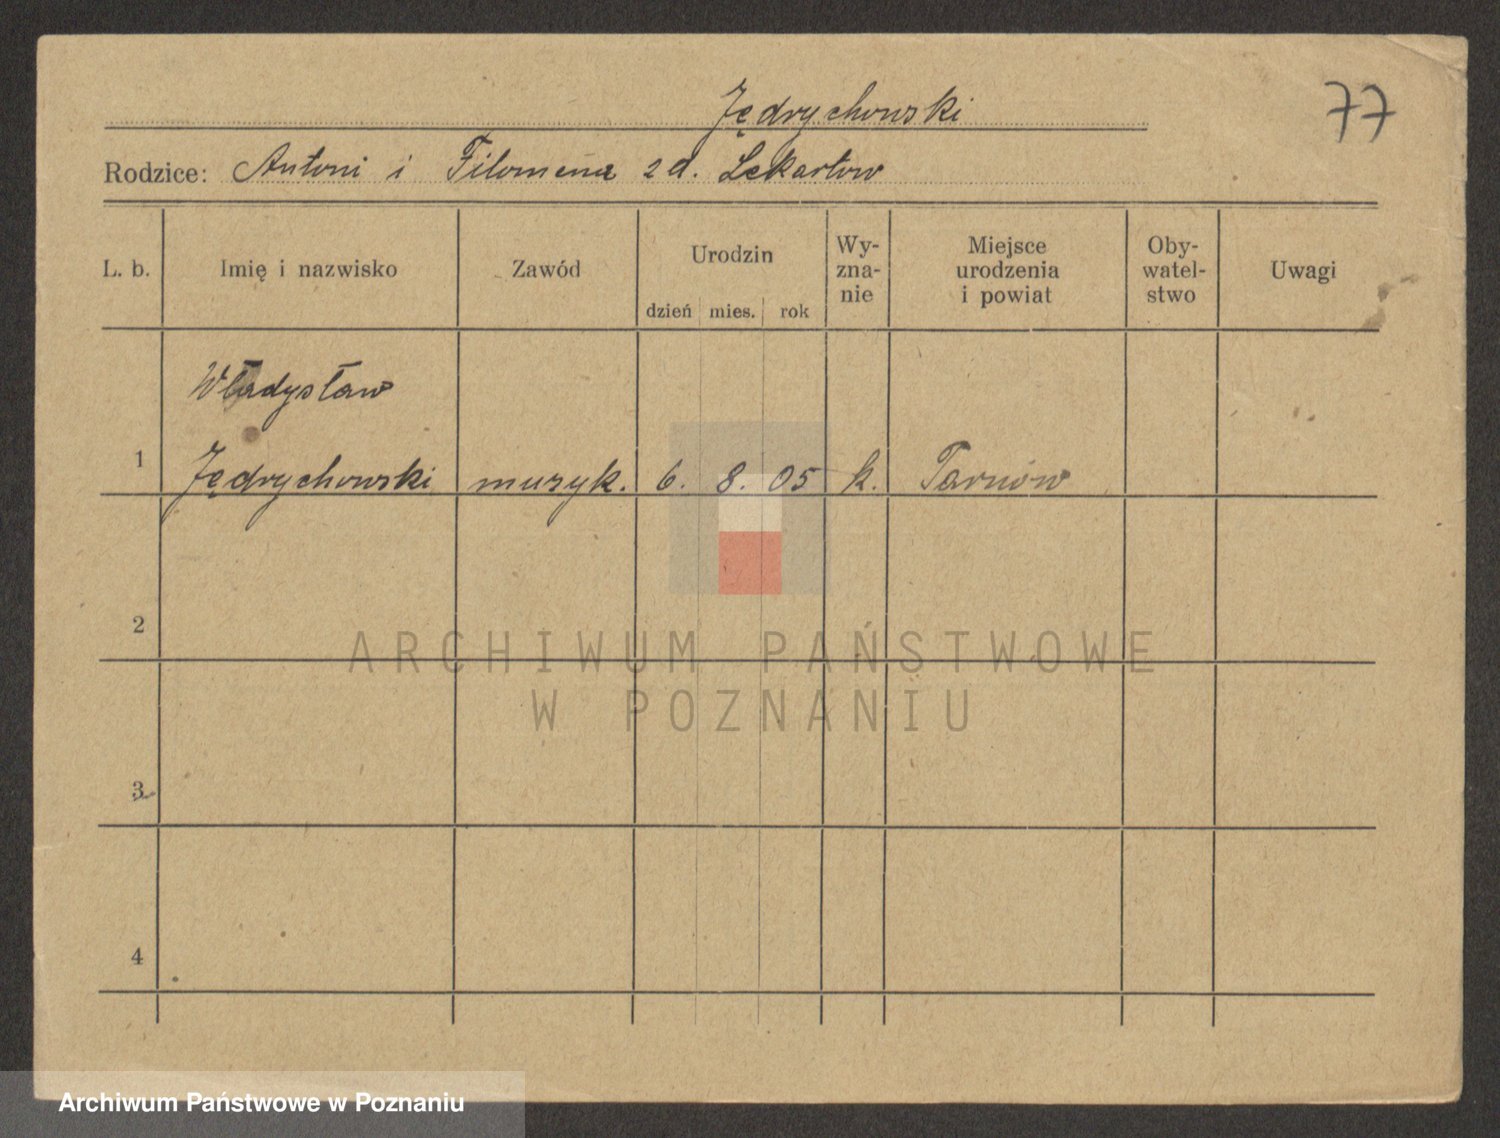 Jędrychowski
77
Rodzice: Antoni i Filomena z d. Lekartow
L. b.
Imię i nazwisko
Zawód
Urodzin
dzień mies. rok
Wy-
zna-
nie
Miejsce
urodzenia
i powiat
Oby-
watel-
stwo
Uwagi
Władysław
1 Jędrychowski muzyk. 6. 8. 05 k. Tarnów
2
ARCHIWUM PAŃSTWOWE
W POZNANIU
3
4
Archiwum Państwowe w Poznaniu